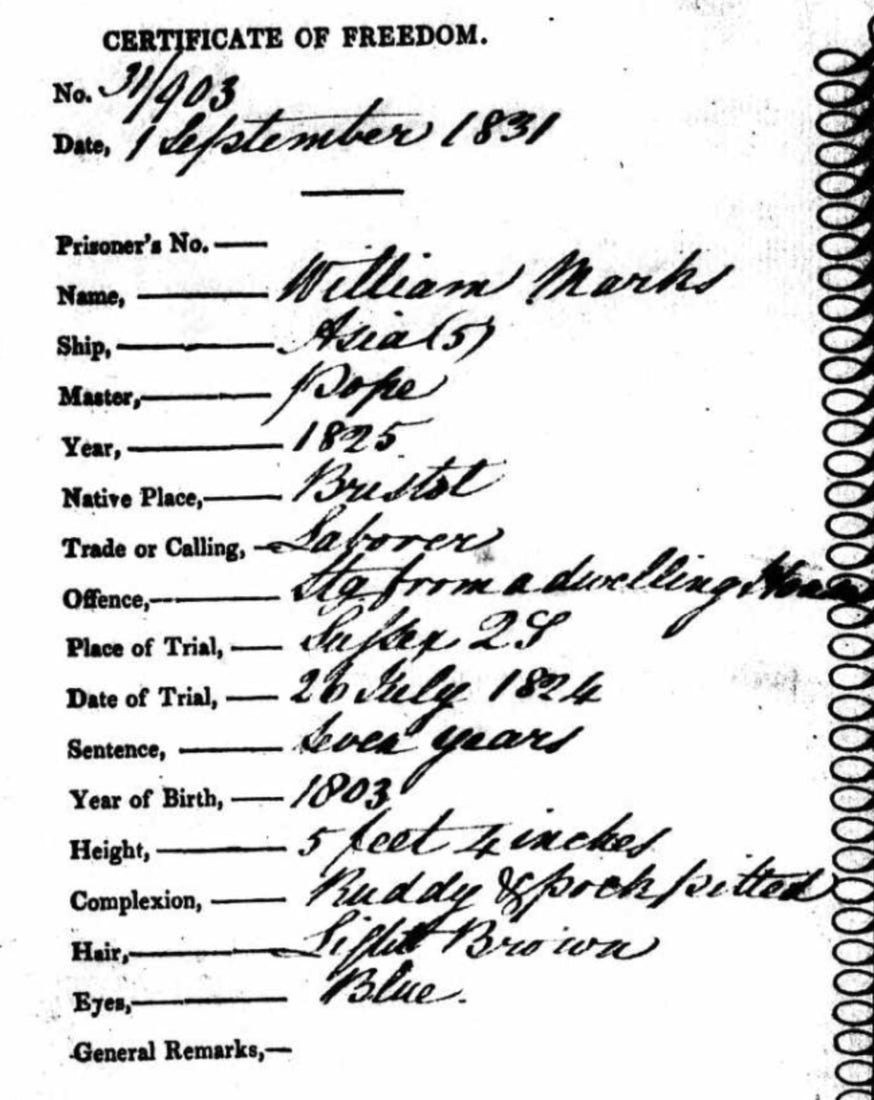 CERTIFICATE OF FREEDOM.
No. 31/903
Date, 1 September 1831
Prisoner's No.
Name, William Marks
Ship, Asia (5)
Master, Pope
Year, 1825
Native Place, Bristol
Trade or Calling, Laborer
Offence, Stg from a dwelling House
Place of Trial, Sussex QS
Date of Trial, 26 July 1824
Sentence, Seven years
Year of Birth, 1803
Height, 5 feet 4 inches
Complexion, Ruddy & pock pitted
Hair, Light Brown
Eyes, Blue.
General Remarks,